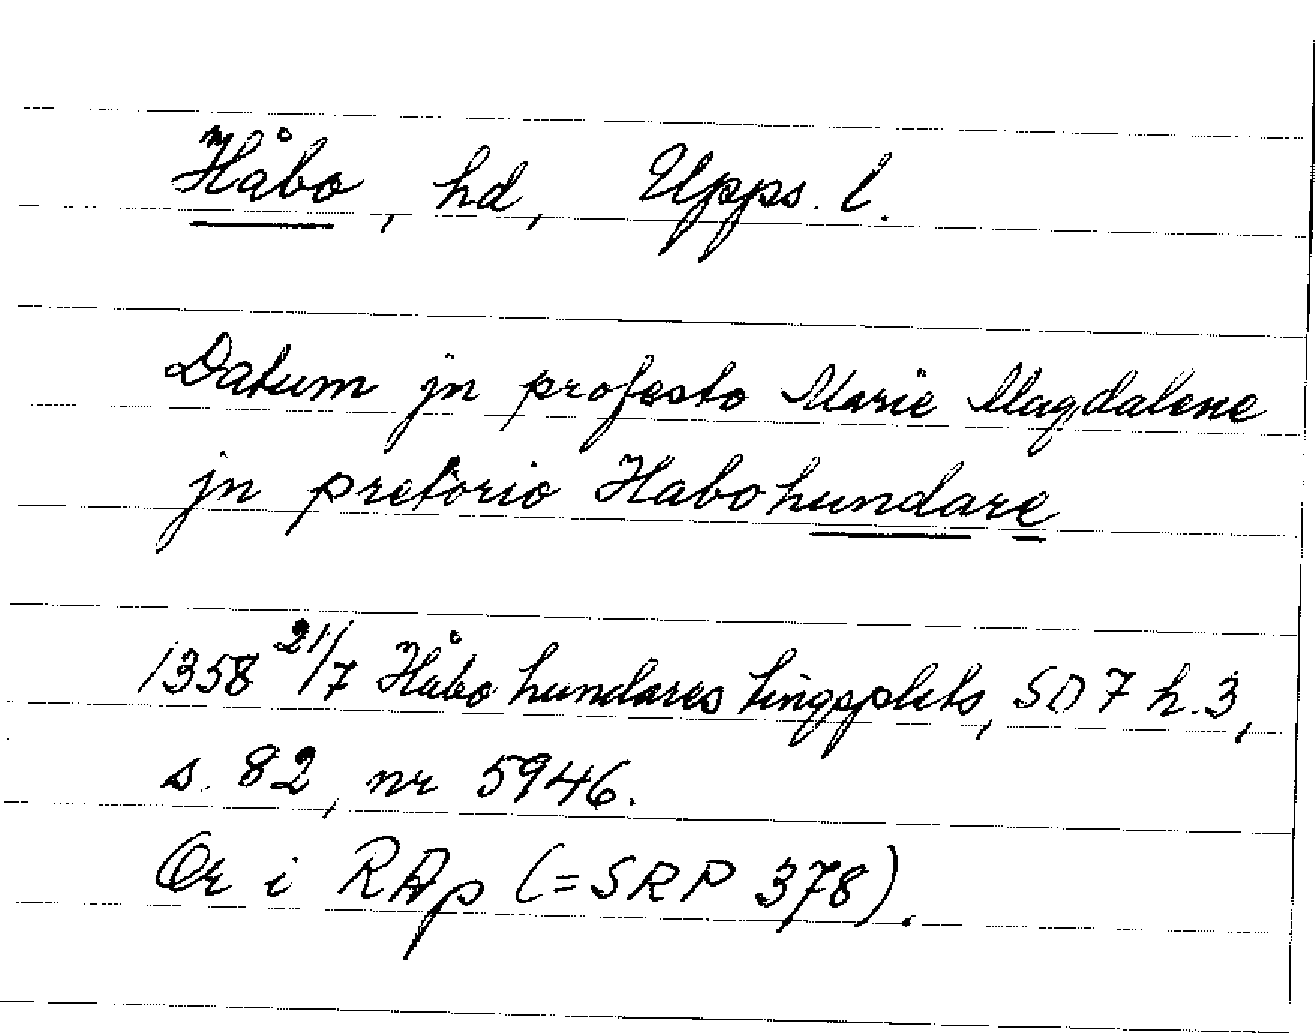 Håbo, hd, Upps. l.
Datum jn profesto Marie Magdalene
jn pretorio Habohundare
1358 21/7 Håbo hundares tingsplats, SD 7 h. 3,
s. 82, nr 5946.
Or i RAp (=SRP 378).